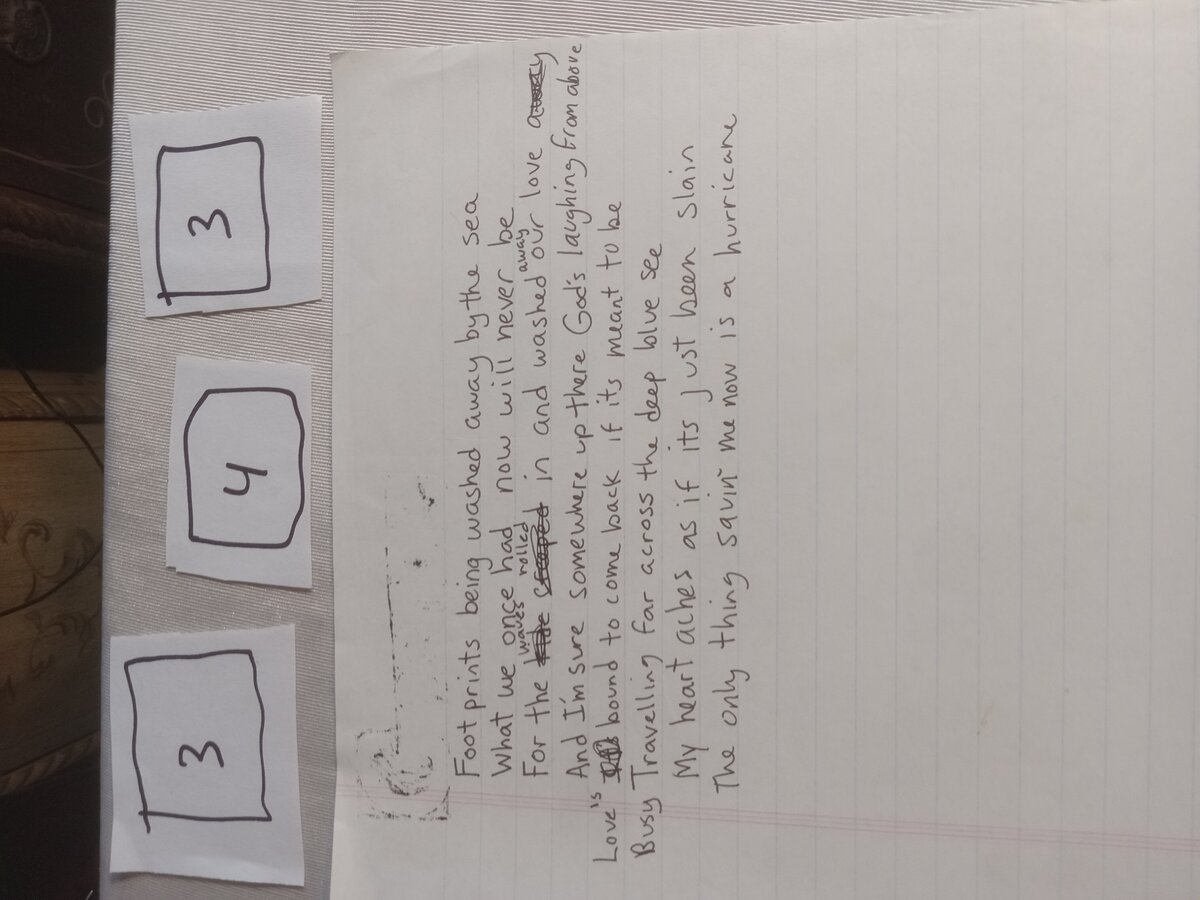 3 4 3
Foot prints being washed away by the sea
What we once had now will never be
For the waves rolled in and washed away our love
And I'm sure somewhere up there God's laughing from above
Love's bound to come back if its meant to be
Busy Travelling far across the deep blue see
My heart aches as if its just been slain
The only thing savin' me now is a hurricane